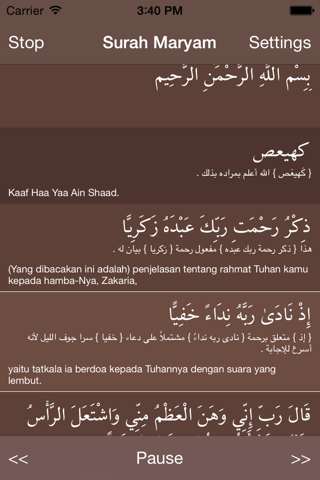 Carrier 3:40 PM
Stop Surah Maryam Settings
بِسْمِ اللَّهِ الرَّحْمَٰنِ الرَّحِيمِ
كهيعص
{ كهيعص } الله أعلم بمراده بذلك .
Kaaf Haa Yaa Ain Shaad.
ذِكْرُ رَحْمَتِ رَبِّكَ عَبْدَهُ زَكَرِيَّا
هذا { ذكر رحمة ربك عبده } مفعول رحمة { زكريا } بيان له .
(Yang dibacakan ini adalah) penjelasan tentang rahmat Tuhan kamu
kepada hamba-Nya, Zakaria,
إِذْ نَادَىٰ رَبَّهُ نِدَاءً خَفِيًّا
{ إذ } متعلق برحمة { نادى ربه نداءً } مشتملاً على دعاء { خفيا } سرا جوف الليل لأنه
أسرع للإجابة .
yaitu tatkala ia berdoa kepada Tuhannya dengan suara yang
lembut.
قَالَ رَبِّ إِنِّي وَهَنَ الْعَظْمُ مِنِّي وَاشْتَعَلَ الرَّأْسُ
<< Pause >>